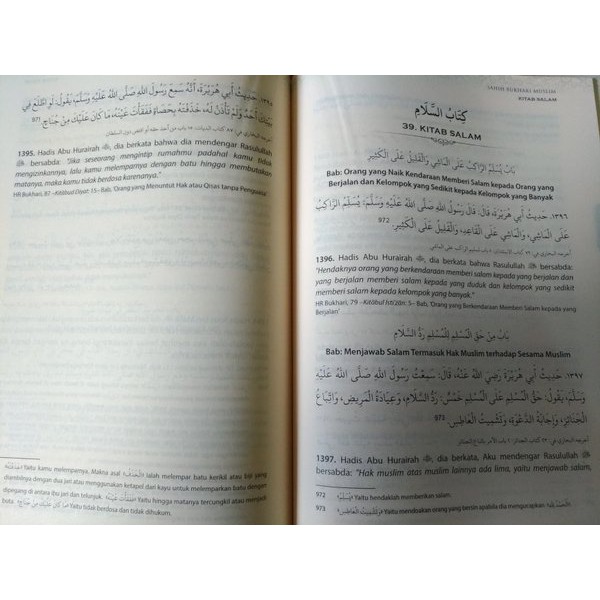 ١٣٩٥. حَدِيثُ أَبِي هُرَيْرَةَ، أَنَّهُ سَمِعَ رَسُولَ اللهِ صَلَّى اللهُ عَلَيْهِ وَسَلَّمَ، يَقُولُ: لَوِ اطَّلَعَ فِي
بَيْتِكَ أَحَدٌ وَلَمْ تَأْذَنْ لَهُ، خَذَفْتَهُ بِحَصَاةٍ فَفَقَأْتَ عَيْنَهُ، مَا كَانَ عَلَيْكَ مِنْ جُنَاحٍ 971
1395. Hadis Abu Hurairah ﷺ, dia berkata bahwa dia mendengar Rasulullah
ﷺ bersabda: "Jika seseorang mengintip rumahmu padahal kamu tidak
mengizinkannya, lalu kamu melemparnya dengan batu hingga membutakan
matanya, maka kamu tidak berdosa karenanya."
HR Bukhari, 87 – Kitâbud Diyat: 15– Bab, 'Orang yang Menuntut Hak atau Qisas tanpa Penguasa'
Yaitu kamu melempernya. Makna asal ialah melempar batu kerikil atau biji yang
diambilnya dengan dua jari atau menggunakan ketapel dari kayu untuk melemparkan batu dengan
dipegang di antara ibu jari dan telunjuk. Yaitu hingga matanya tercungkil atau menjadi
buta. Yaitu tidak berdosa dan tidak dihukum.
SAHIH BUKHARI MUSLIM
KITAB SALAM
كِتَابُ السَّلَامِ
39. KITAB SALAM
بَابُ يُسَلِّمُ الرَّاكِبُ عَلَى الْمَاشِي وَالْقَلِيلُ عَلَى الْكَثِيرِ
Bab: Orang yang Naik Kendaraan Memberi Salam kepada Orang yang
Berjalan dan Kelompok yang Sedikit kepada Kelompok yang Banyak
١٣٩٦. حَدِيثُ أَبِي هُرَيْرَةَ، قَالَ: قَالَ رَسُولُ اللهِ صَلَّى اللهُ عَلَيْهِ وَسَلَّمَ، يُسَلِّمُ الرَّاكِبُ
عَلَى الْمَاشِي، وَالْمَاشِي عَلَى الْقَاعِدِ، وَالْقَلِيلُ عَلَى الْكَثِيرِ. 972
1396. Hadis Abu Hurairah ﷺ, dia berkata bahwa Rasulullah ﷺ bersabda:
"Hendaknya orang yang berkendaraan memberi salam kepada yang berjalan dan
yang berjalan memberi salam kepada yang duduk dan kelompok yang sedikit
memberi salam kepada kelompok yang banyak."
HR Bukhari, 79 – Kitâbul Isti'zân: 5– Bab, 'Orang yang Berkendaraan Memberi Salam kepada yang
Berjalan'
بَابُ مِنْ حَقِّ الْمُسْلِمِ لِلْمُسْلِمِ رَدُّ السَّلَامِ
Bab: Menjawab Salam Termasuk Hak Muslim terhadap Sesama Muslim
١٣٩٧. حَدِيثُ أَبِي هُرَيْرَةَ رَضِيَ اللهُ عَنْهُ، قَالَ: سَمِعْتُ رَسُولَ اللهِ صَلَّى اللهُ عَلَيْهِ
وَسَلَّمَ، يَقُولُ: حَقُّ الْمُسْلِمِ عَلَى الْمُسْلِمِ خَمْسٌ: رَدُّ السَّلَامِ، وَعِيَادَةُ الْمَرِيضِ، وَاتِّبَاعُ
الْجَنَائِزِ، وَإِجَابَةُ الدَّعْوَةِ، وَتَشْمِيتُ الْعَاطِسِ. 973
1397. Hadis Abu Hurairah ﷺ, dia berkata, Aku mendengar Rasulullah ﷺ
bersabda: "Hak muslim atas muslim lainnya ada lima, yaitu menjawab salam,
972 «يُسَلِّمُ» Yaitu hendaklah memberikan salam.
973 «وَتَشْمِيتُ الْعَاطِسِ» Yaitu mendoakan orang yang bersin apabila dia mengucapkan